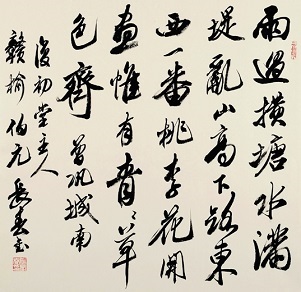 雨過横塘水滿
堤亂山高下路東
西一番桃李花開
盡惟有青〻草
色齊 曾巩城南
復初堂主人
贛榆伯元長春書